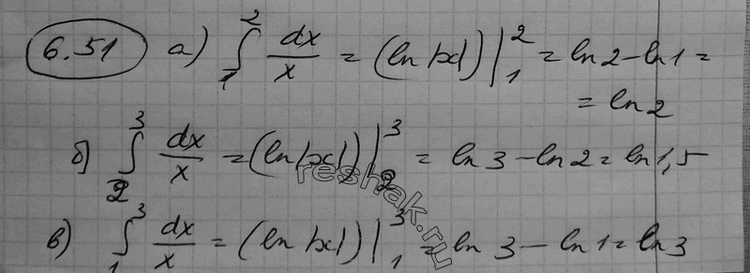 6.51 а) ∫₁² dx/x = (ln|x|)|₁² = ln2 - ln1 =
= ln2
б) ∫₂³ dx/x = (ln|x|)|₂³ = ln3 - ln2 = ln1,5
в) ∫₁³ dx/x = (ln|x|)|₁³ = ln3 - ln1 = ln3
reshak.ru